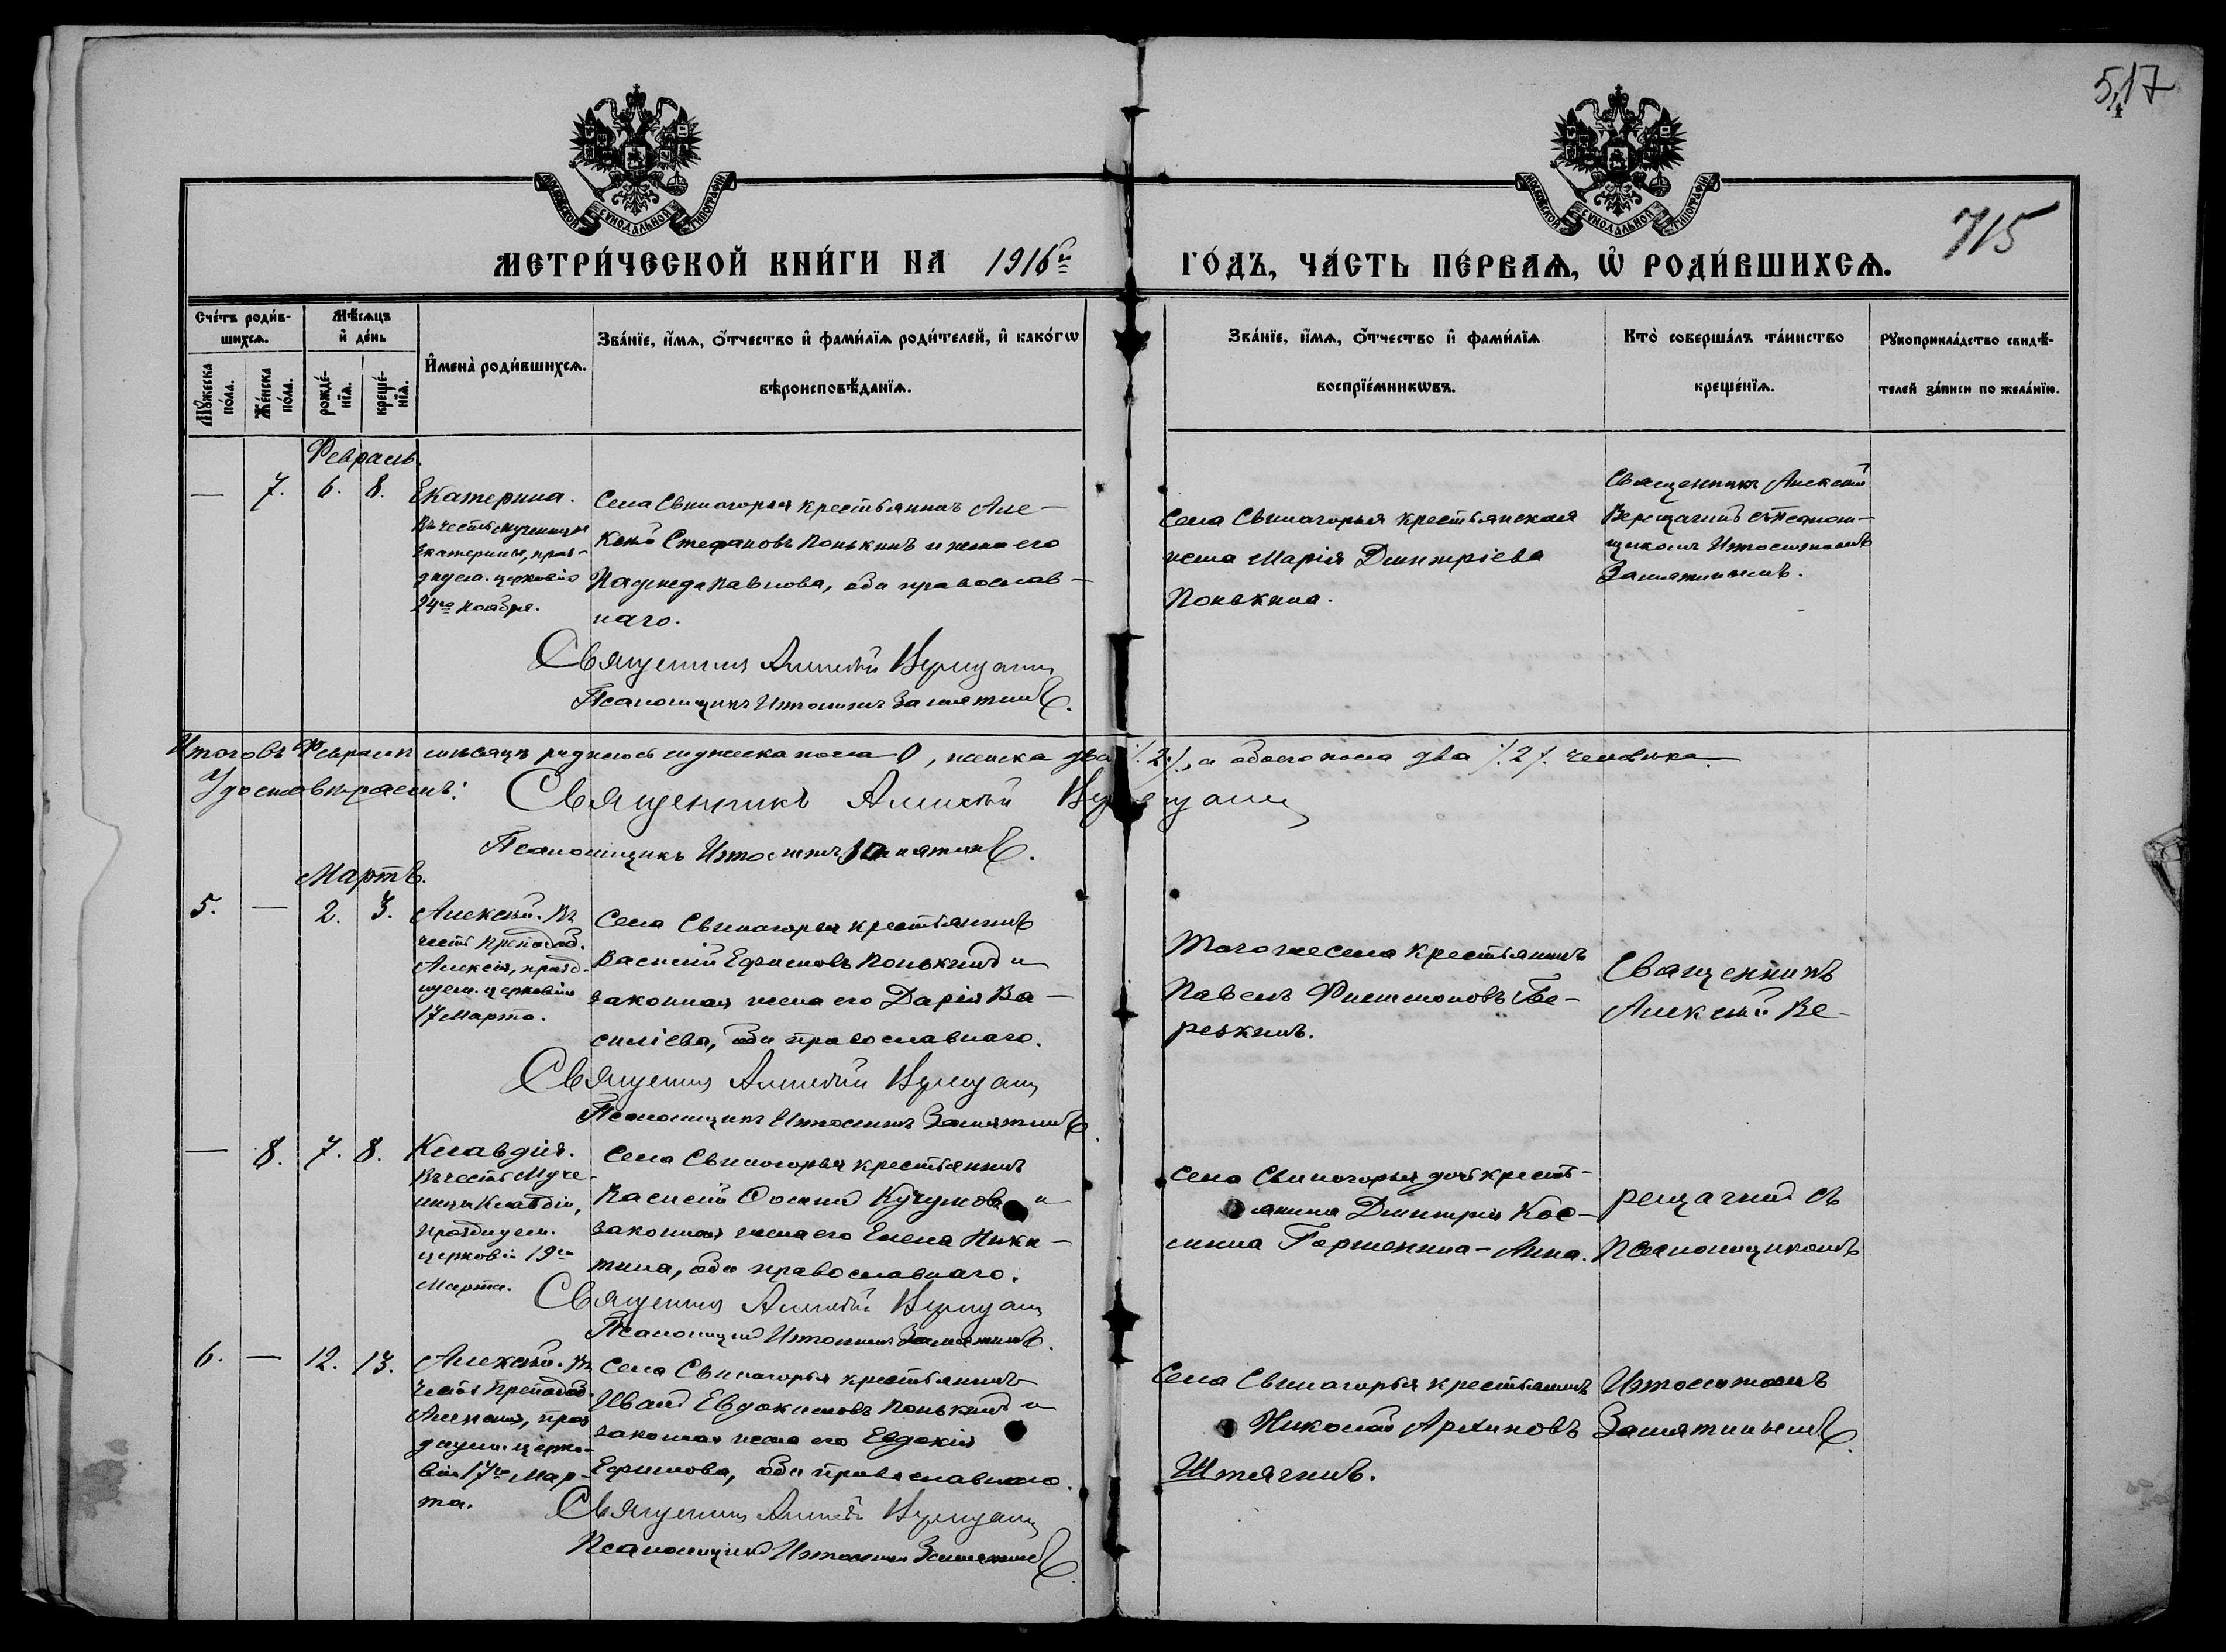 517
715
МОСКОВСКОЙ СѴНОДАЛЬНОЙ ТИПОГРАФІИ
МОСКОВСКОЙ СѴНОДАЛЬНОЙ ТИПОГРАФІИ
МЕТРИ́ЧЕСКОЙ КНИ́ГИ НА 1916й ГО́ДЪ, ЧА́СТЬ ПЕ́РВАѦ, Ѡ҆ РОДИ́ВШИХСѦ.
Сче́тъ роди́в-
шихсѧ.
Мꙋ́жеска по́ла.
Же́нска по́ла.
Мѣ́сѧцъ
и҆ де́нь
рожде́-
нїѧ.
креще́-
нїѧ.
И҆мена̀ роди́вшихсѧ.
Зва́нїе, и҆́мѧ, ѻ҆́тчество и҆ фами́лїѧ роди́телей, и҆ како́гѡ
вѣроисповѣ́данїѧ.
Зва́нїе, и҆́мѧ, ѻ҆́тчество и҆ фами́лїѧ
воспрїе́мникѡвъ.
Кто̀ соверша́лъ та́инство
креще́нїѧ.
Рꙋкоприкла́дство свидѣ́-
телей за́писи по жела́нїю.
Февраль.
— 7. 6. 8.
Екатерина.
Въ честь мученицы
Екатерины, празд-
днуем. церковію
24го Ноября.
Села Свиногорья крестьянинъ Але-
ксѣй Стефановъ Понькинъ и жена его
Надежда Павлова, оба православ-
наго.
Священникъ Алексѣй Верещагинъ
Псаломщикъ Замятинъ.
Села Свиногорья крестьянская
жена Марія Димитріева
Понькина.
Священникъ Алексѣй
Верещагинъ съ псалом-
щикомъ
Замятинымъ.
Итого въ Февралѣ мѣсяцѣ родилось мужеска пола 0, женска два /.2./, а обоего пола два /.2./. человѣка.
Удостовѣряемъ:
Священникъ Алексѣй Верещагинъ
Псаломщикъ Замятинъ.
Мартъ.
5. — 2. 3.
Алексѣй. Въ
честь Преподоб.
Алексія, празд-
нуем. церковію
17 Марта.
Села Свиногорья крестьянинъ
Василій Ефимовъ Понькинъ и
законная жена его Дарія Ва-
силіева, оба православнаго.
Священникъ Алексѣй Верещагинъ
Псаломщикъ Замятинъ
Того же села крестьянинъ
Павелъ Филимоновъ Бе-
резкинъ.
Священникъ
Алексѣй Ве-
— 8. 7. 8.
Клавдія.
Въ честь Муче-
ницы Клавдіи,
празднуем.
церковію 19го
Марта.
Села Свиногорья крестьянинъ
Василій Осиповъ Кучумовъ и
законная жена его Елена Ники-
тина, оба православнаго.
Священникъ Алексѣй Верещагинъ
Псаломщикъ Замятинъ.
Села Свиногорья дочь кресть-
янина Димитрія Кос-
мина Горшенина - Анна.
рещагинъ съ
псаломщикомъ
6. — 12. 13.
Алексѣй. Въ
честь Преподоб.
Алексія, праз
днуем. церко-
вію 17го Мар-
та.
Села Свиногорья крестьянинъ
Иванъ Евдокимовъ Понькинъ и
законная жена его Евдокія
Ефимова, оба православнаго.
Священникъ Алексѣй Верещагинъ
Псаломщикъ Замятинъ.
Села Свиногорья крестьянинъ
Николай Архиповъ
Замятинымъ.